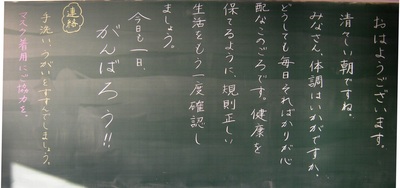 おはようございます。
清々しい朝ですね。
みなさん、体調はいかがですか、
どうしても毎日そればかりが心
配なこのごろです。健康を
保てるように、規則正しい
生活をもう一度確認し
ましょう。
今日も一日、
がんばろう!!
連絡
手洗い、うがいをすすんでしましょう。
マスク着用にご協力を。